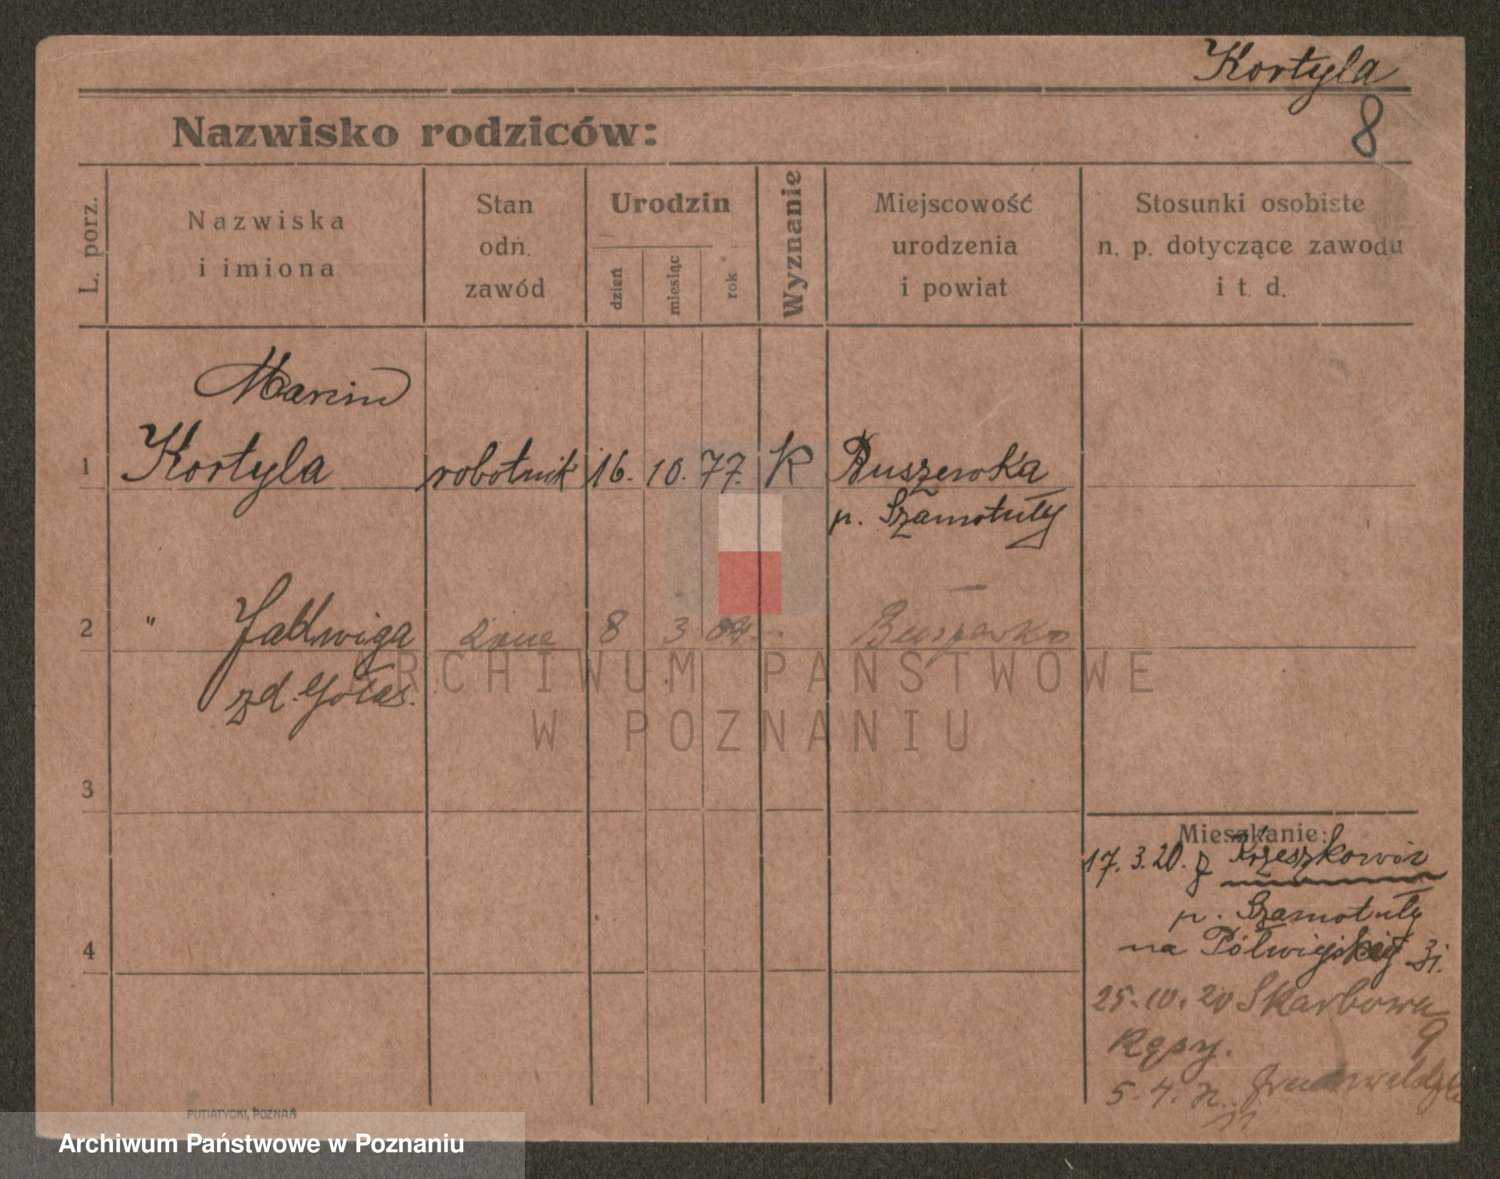 Kortyla
8
Nazwisko rodziców:
L. porz.
Nazwiska
i imiona
Stan
odn.
zawód
Urodzin
dzień
miesiąc
rok
Wyznanie
Miejscowość
urodzenia
i powiat
Stosunki osobiste
n. p. dotyczące zawodu
i t. d.
Marcin
1 Kortyla robotnik 16. 10. 77. K Buszewka
p. Szamotuły
2 " Jadwiga 8 3
zd. Gołas.
3
4
Mieszkanie:
17. 3. 20. z
p. Szamotuły
na Półwiejskiej 31.
25. 10. 20 Skarbowa
9
5. 4.
PUTIATYCKI, POZNAŃ
ARCHIWUM PAŃSTWOWE
W POZNANIU
Archiwum Państwowe w Poznaniu